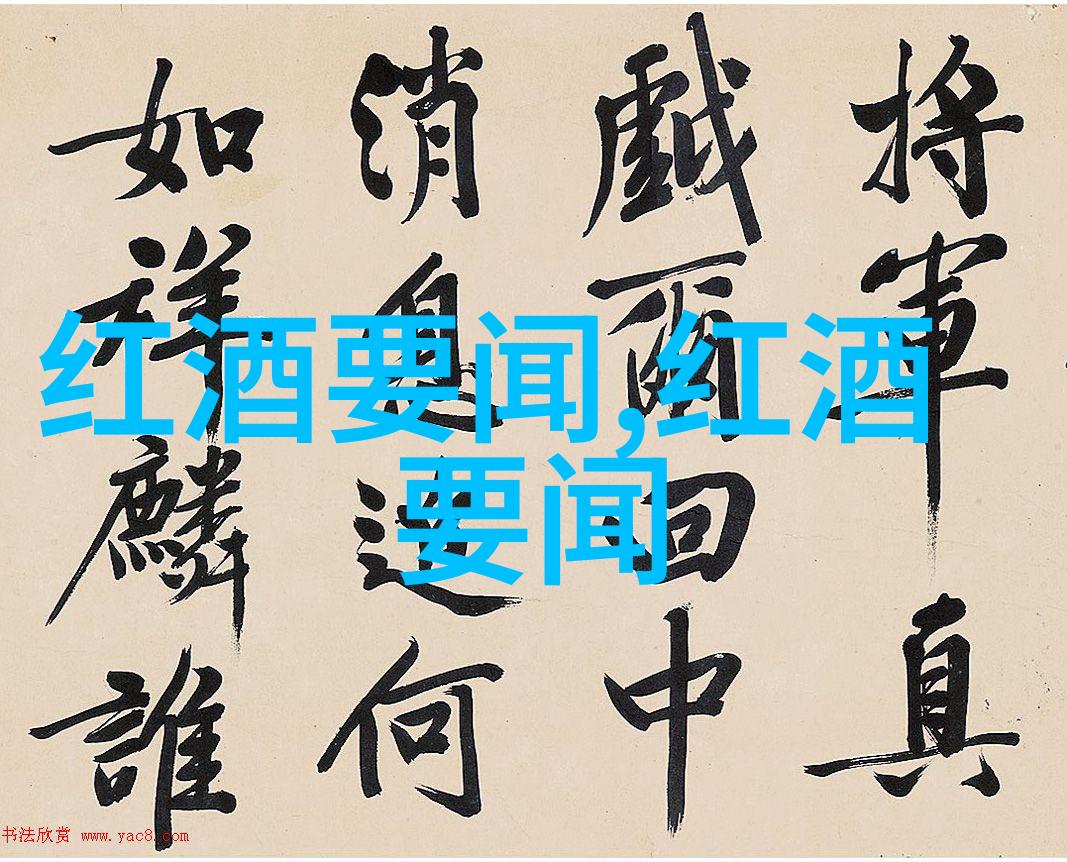 将軍真
戱爾回中
消息何
如祥麟誰
红酒要闻,红酒
要闻
书法欣赏 www.yac8.com